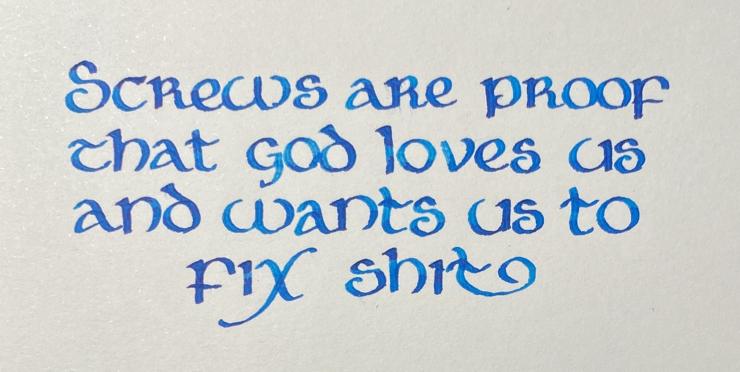 Screws are proof
that god loves us
and wants us to
fix shit